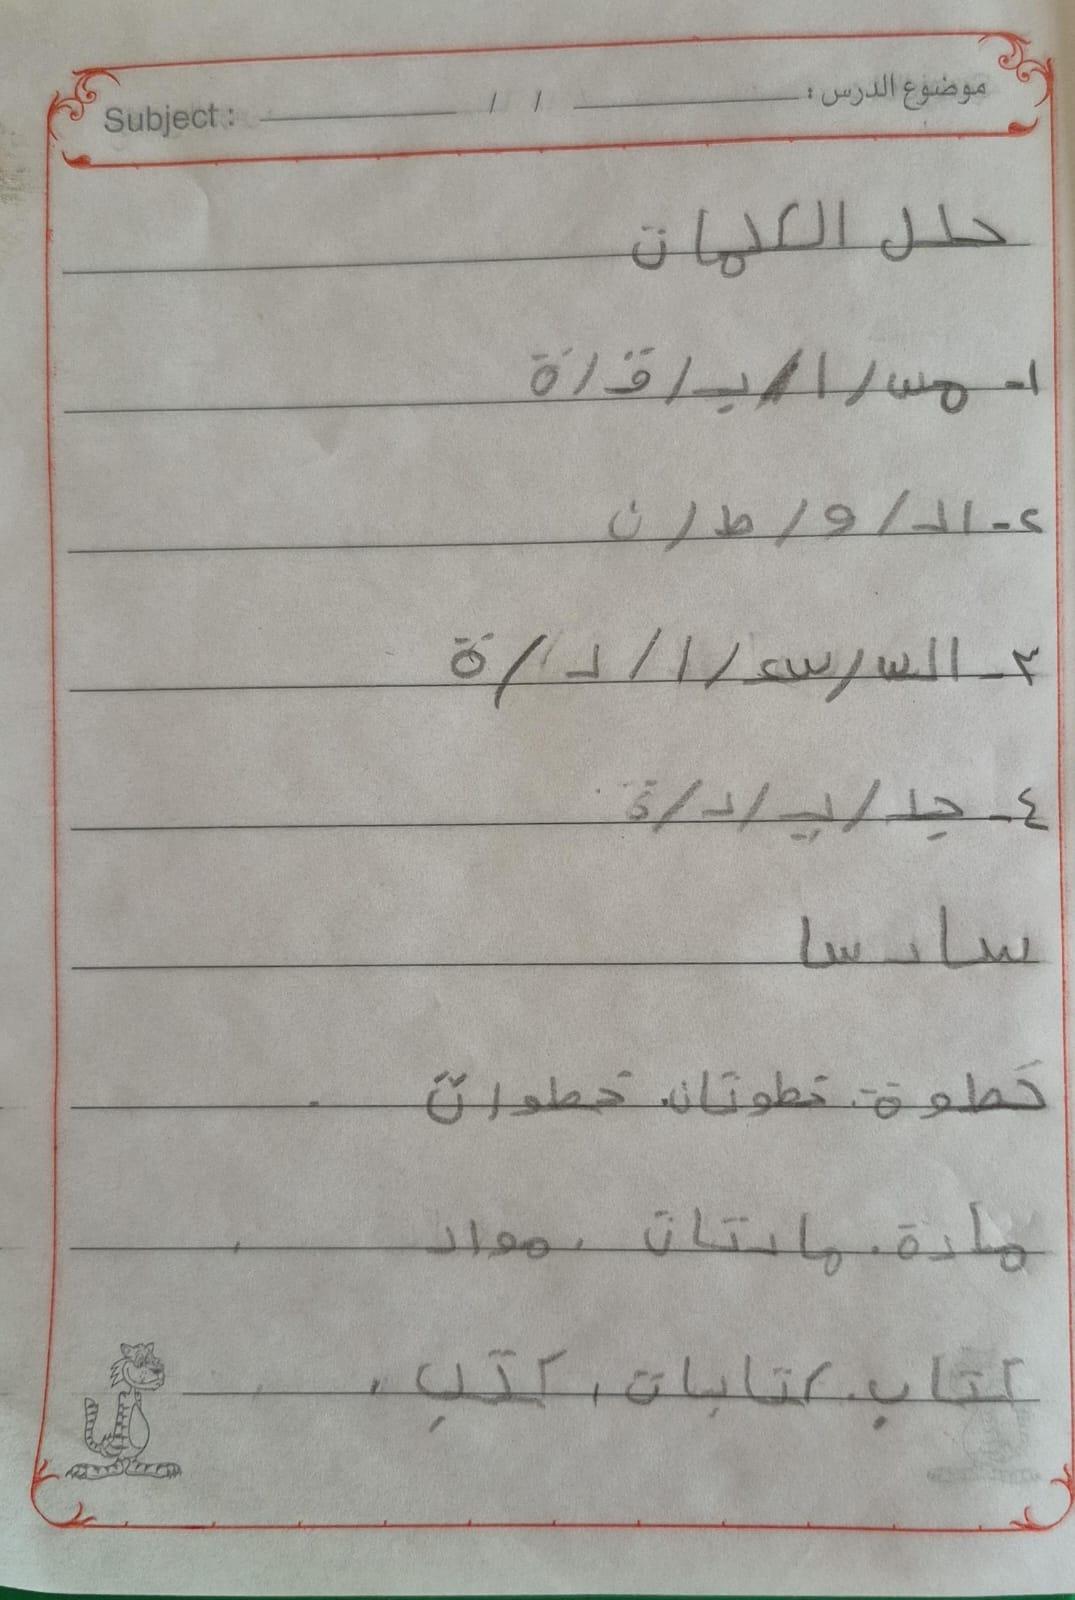 موضوع الدرس : / / Subject :
حلل الكلمات
١- مسـ / ا / بـ / قـ / ة
٢- الـ / و / ط / ن
٣- السـ / عـ / ا / د / ة
٤- جد / يـ / د / ة
سادسا
خطوة. خطوتان. خطوات
مادة. مادتان . مواد
كتاب. كتابات ، كتب .